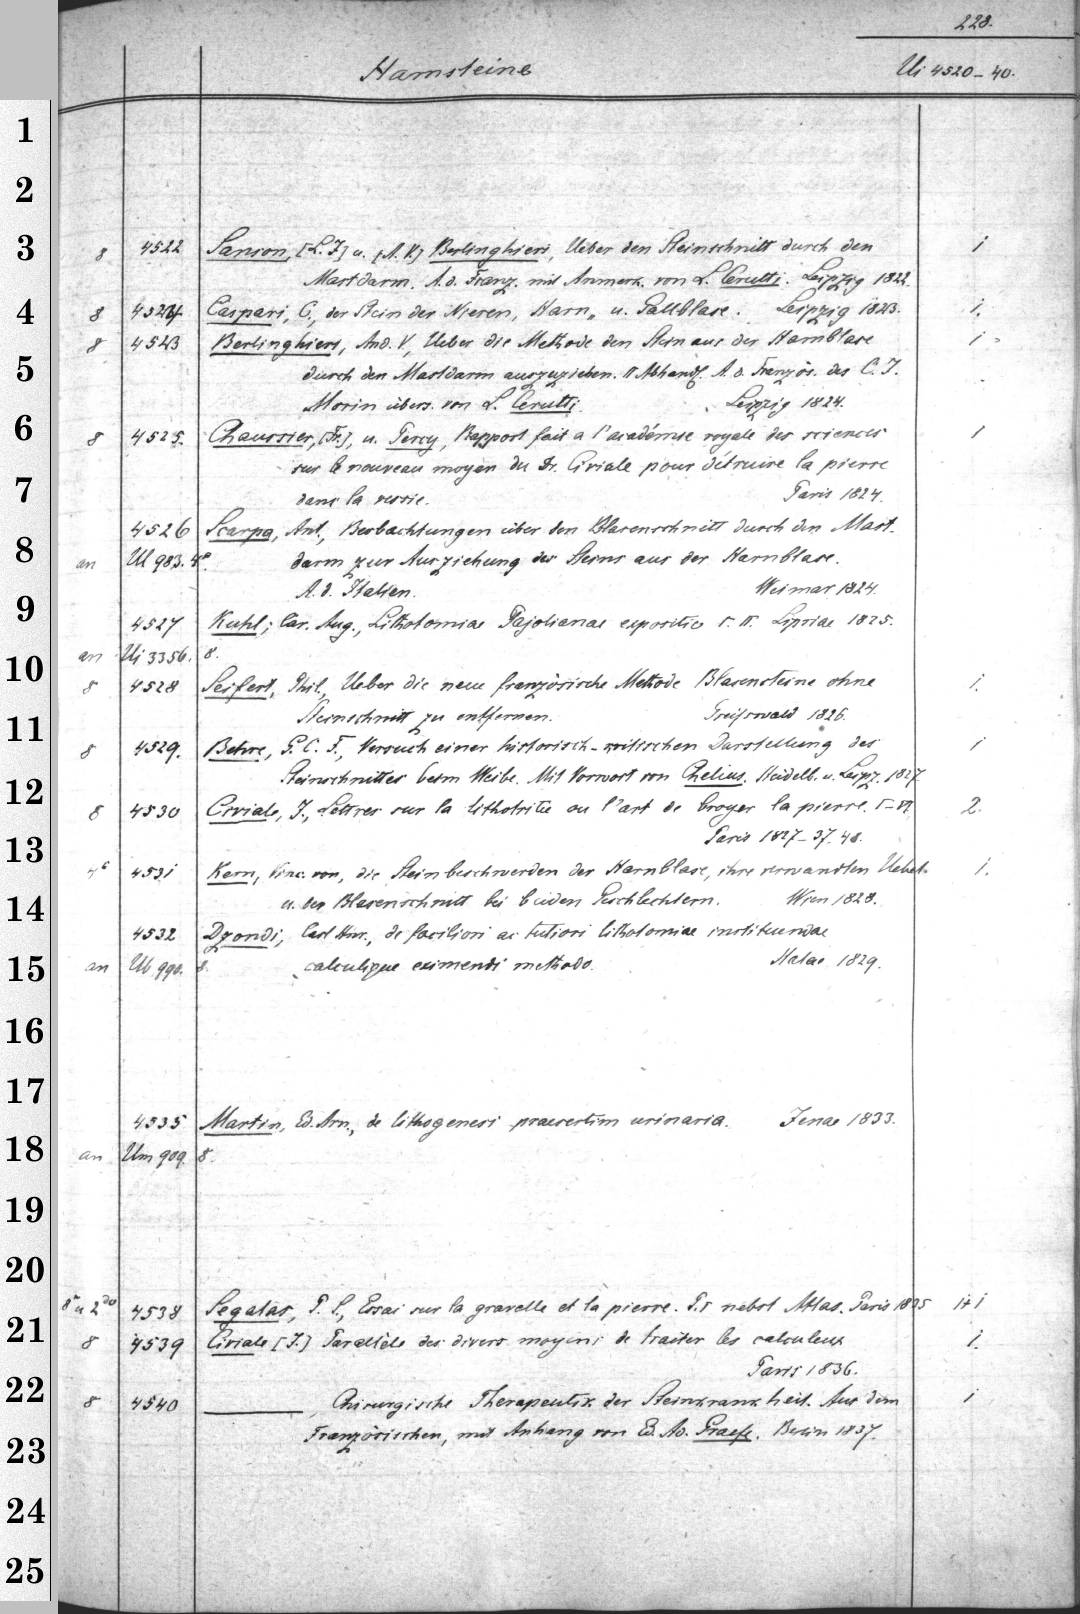 223.
Harnsteine Ui 4520-40.
1
2
3
8 4522 Sanson, [L. J] u. [A. V.] Berlinghieri, Ueber den Steinschnitt durch den 1
Mastdarm. A. d. Franz. mit Anmerk. von L. Cerutti. Leipzig 1822.
4
8 4524 Caspari, C., der Stein der Nieren, Harn- u. Gallblase. Leipzig 1823. 1.
8 4523 Berlinghieri, And. V, Ueber die Methode den Stein aus der Harnblase 1
5
durch den Mastdarm auszuziehen. II Abhandl. A. d. Französ. des C. J.
Morin übers. von L. Cerutti. Leipzig 1824.
6
8 4525. Chaussier, [Fr.], u. Percy, Rapport fait a l'académie royale des sciences 1
sur le nouveau moyen du Dr. Civiale pour détruire la pierre
7
dans la vessie. Paris 1824.
4526 Scarpa, Ant., Beobachtungen über den Blasenschnitt durch den Mast-
8
an Ul 983. 4°. darm zur Ausziehung des Steins aus der Harnblase.
A. d. Italien. Weimar 1824.
9
4527 Kuhl, Car. Aug., Lithotomiae Pajolianae expositio I. II. Lipsiae 1825.
an Ui 3356. 8.
10
8 4528 Seifert, Phil., Ueber die neue französische Methode Blasensteine ohne 1.
Steinschnitt zu entfernen. Greifswald 1826.
11
8 4529. Behre, G. C. F., Versuch einer historisch-kritischen Darstellung des 1
Steinschnittes beim Weibe. Mit Vorwort von Chelius. Heidelb. u. Leipz. 1827
12
8 4530 Civiale, J., Lettres sur la lithotritie ou l'art de broyer la pierre. I-VI 2.
Paris 1827-37. 48.
13
4° 4531 Kern, Vinc. von, die Steinbeschwerden der Harnblase, ihre verwandten Uebel- 1.
14
u. der Blasenschnitt bei beiden Geschlechtern. Wien 1828.
4532 Dzondi, Carl Hnr., de faciliori ac tutiori lithotomiae instituendae
15
an Ub 990. 8. calculique eximendi methodo. Halae 1829.
16
17
4535 Martin, Ed. Arn., de lithogenesi praesertim urinaria. Jenae 1833.
18
an Um 909. 8.
19
20
8° u 2do 4538 Segalas, P. S., Essai sur la gravelle et la pierre. P. I nebst Atlas. Paris 1835 1+1
21
8 4539 Civiale [J.] Parallèle des divers moyens de traiter les calculeux 1.
Paris 1836.
22
8 4540 ———, Chirurgische Therapeutik der Steinkrankheit. Aus dem 1
23
Französischen, mit Anhang von Ed. Ad. Graefe. Berlin 1837.
24
25